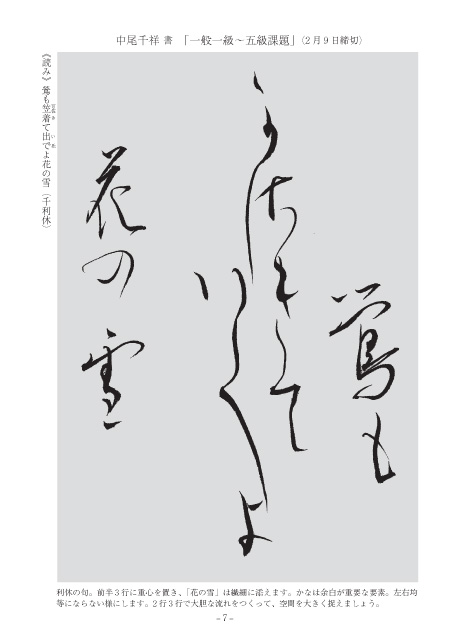 中尾千祥 書 「一般一級～五級課題」(2月9日締切)
《読み》鶯も笠着て出でよ花の雪(千利休)
鶯も
かさきて
いでよ
花の雪
利休の句。前半3行に重心を置き、「花の雪」は繊細に添えます。かなは余白が重要な要素。左右均
等にならない様にします。2行3行で大胆な流れをつくって、空間を大きく捉えましょう。
−7−